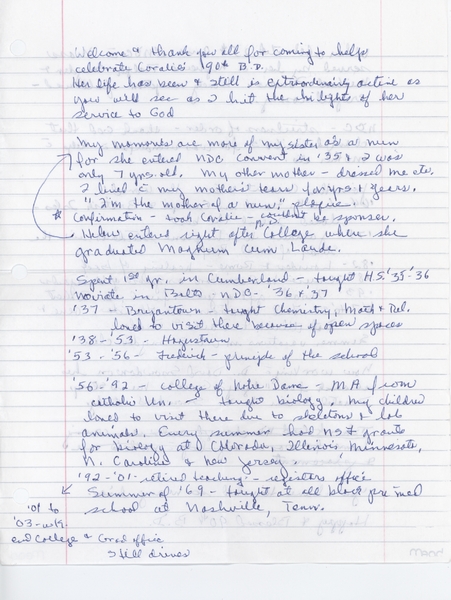 Welcome & thank you all for coming to help
celebrate Coralie's 90th B.D.
Her life has been & still is extraordinarily active as
you will see as I hit the hilights of her
service to God
My moments are more of my sister as a nun
for she entered NDC convent in '35 & I was
only 7 yrs. old. My other mother - dressed me etc.
I lived my mother's tears for yrs & years.
"I'm the mother of a nun." plaque.
Confirmation - took Coralie - couldn't be sponsor.
Helen entered right after N.D. College where she
graduated Magnum Cum Laude.
Spent 1st yr. in Cumberland - taught H.S. '35-'36
Noviate in Balto - NDC - '36 & '37
'37 - Bryantown - taught Chemistry, Math & Rel.
loved to visit there because of open spaces
'38 - '53 - Hagerstown
'53 - '56 - Frederick - principle of the school
'56 - '92 - College of Notre Dame - M.A. from
Catholic Un. - taught biology, my children
loved to visit there due to skeletons & lab
animals. Every summer had NSF grants
for biology at Colorado, Illinois, Minnesota,
N. Carolina & New Jersey.
'92 - '01 - retired teaching - registers office
Summer of '69 - taught at all black pre med
school at Nashville, Tenn.
'01 to
'03 - wk
end College & Grad office
Still drives